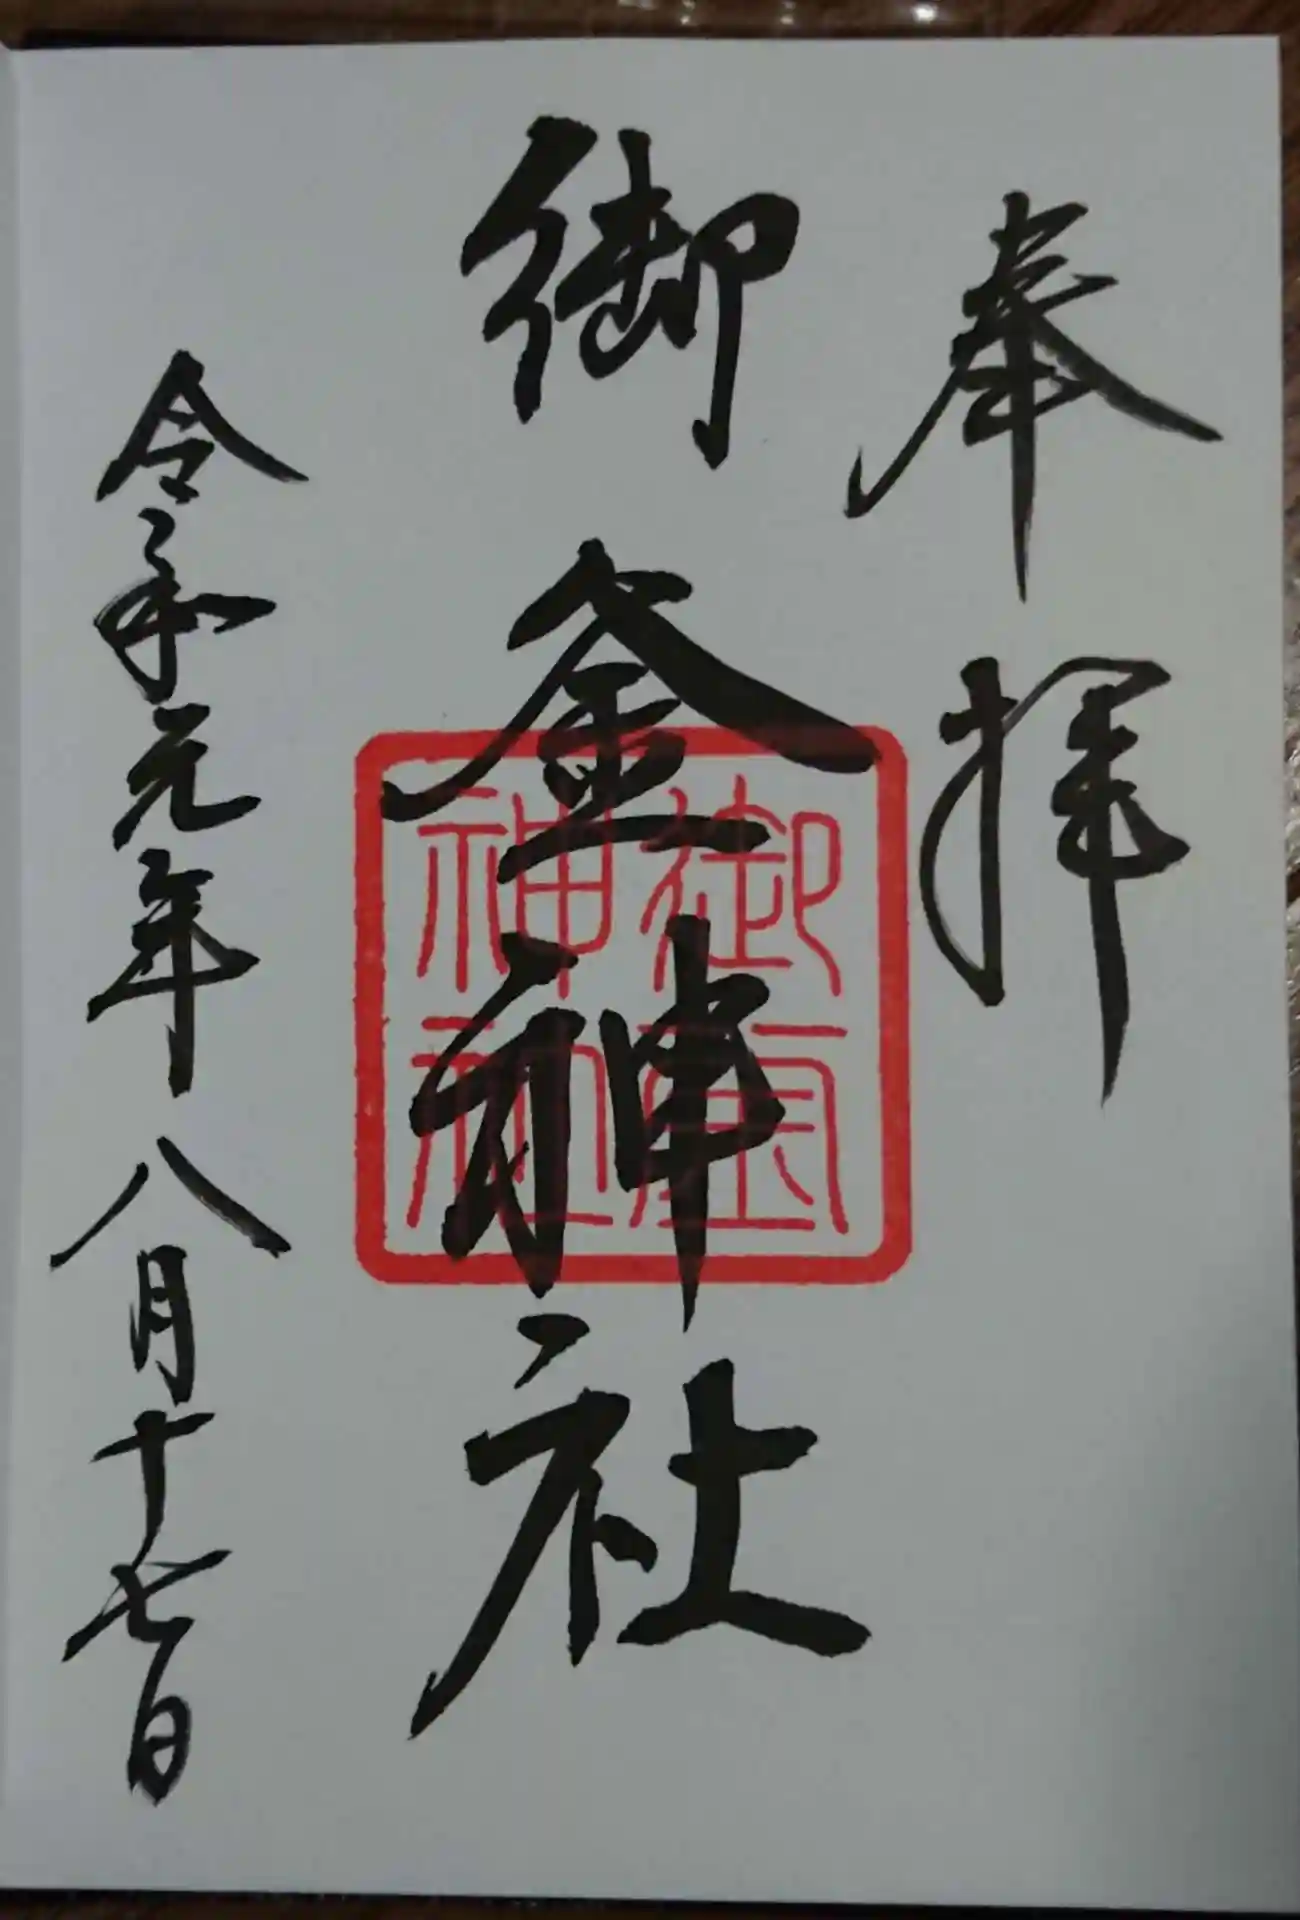 奉拝
御釜神社
御釜神社
令和元年八月十七日